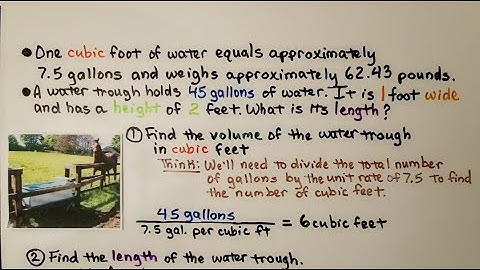 • One cubic foot of water equals approximately
7.5 gallons and weighs approximately 62.43 pounds.
• A water trough holds 45 gallons of water. It is 1 foot wide
and has a height of 2 feet. What is its length?
① Find the volume of the water trough
in cubic feet
Think: We'll need to divide the total number
of gallons by the unit rate of 7.5 to find
the number of cubic feet.
45 gallons
7.5 gal. per cubic ft = 6 cubic feet
② Find the length of the water trough.